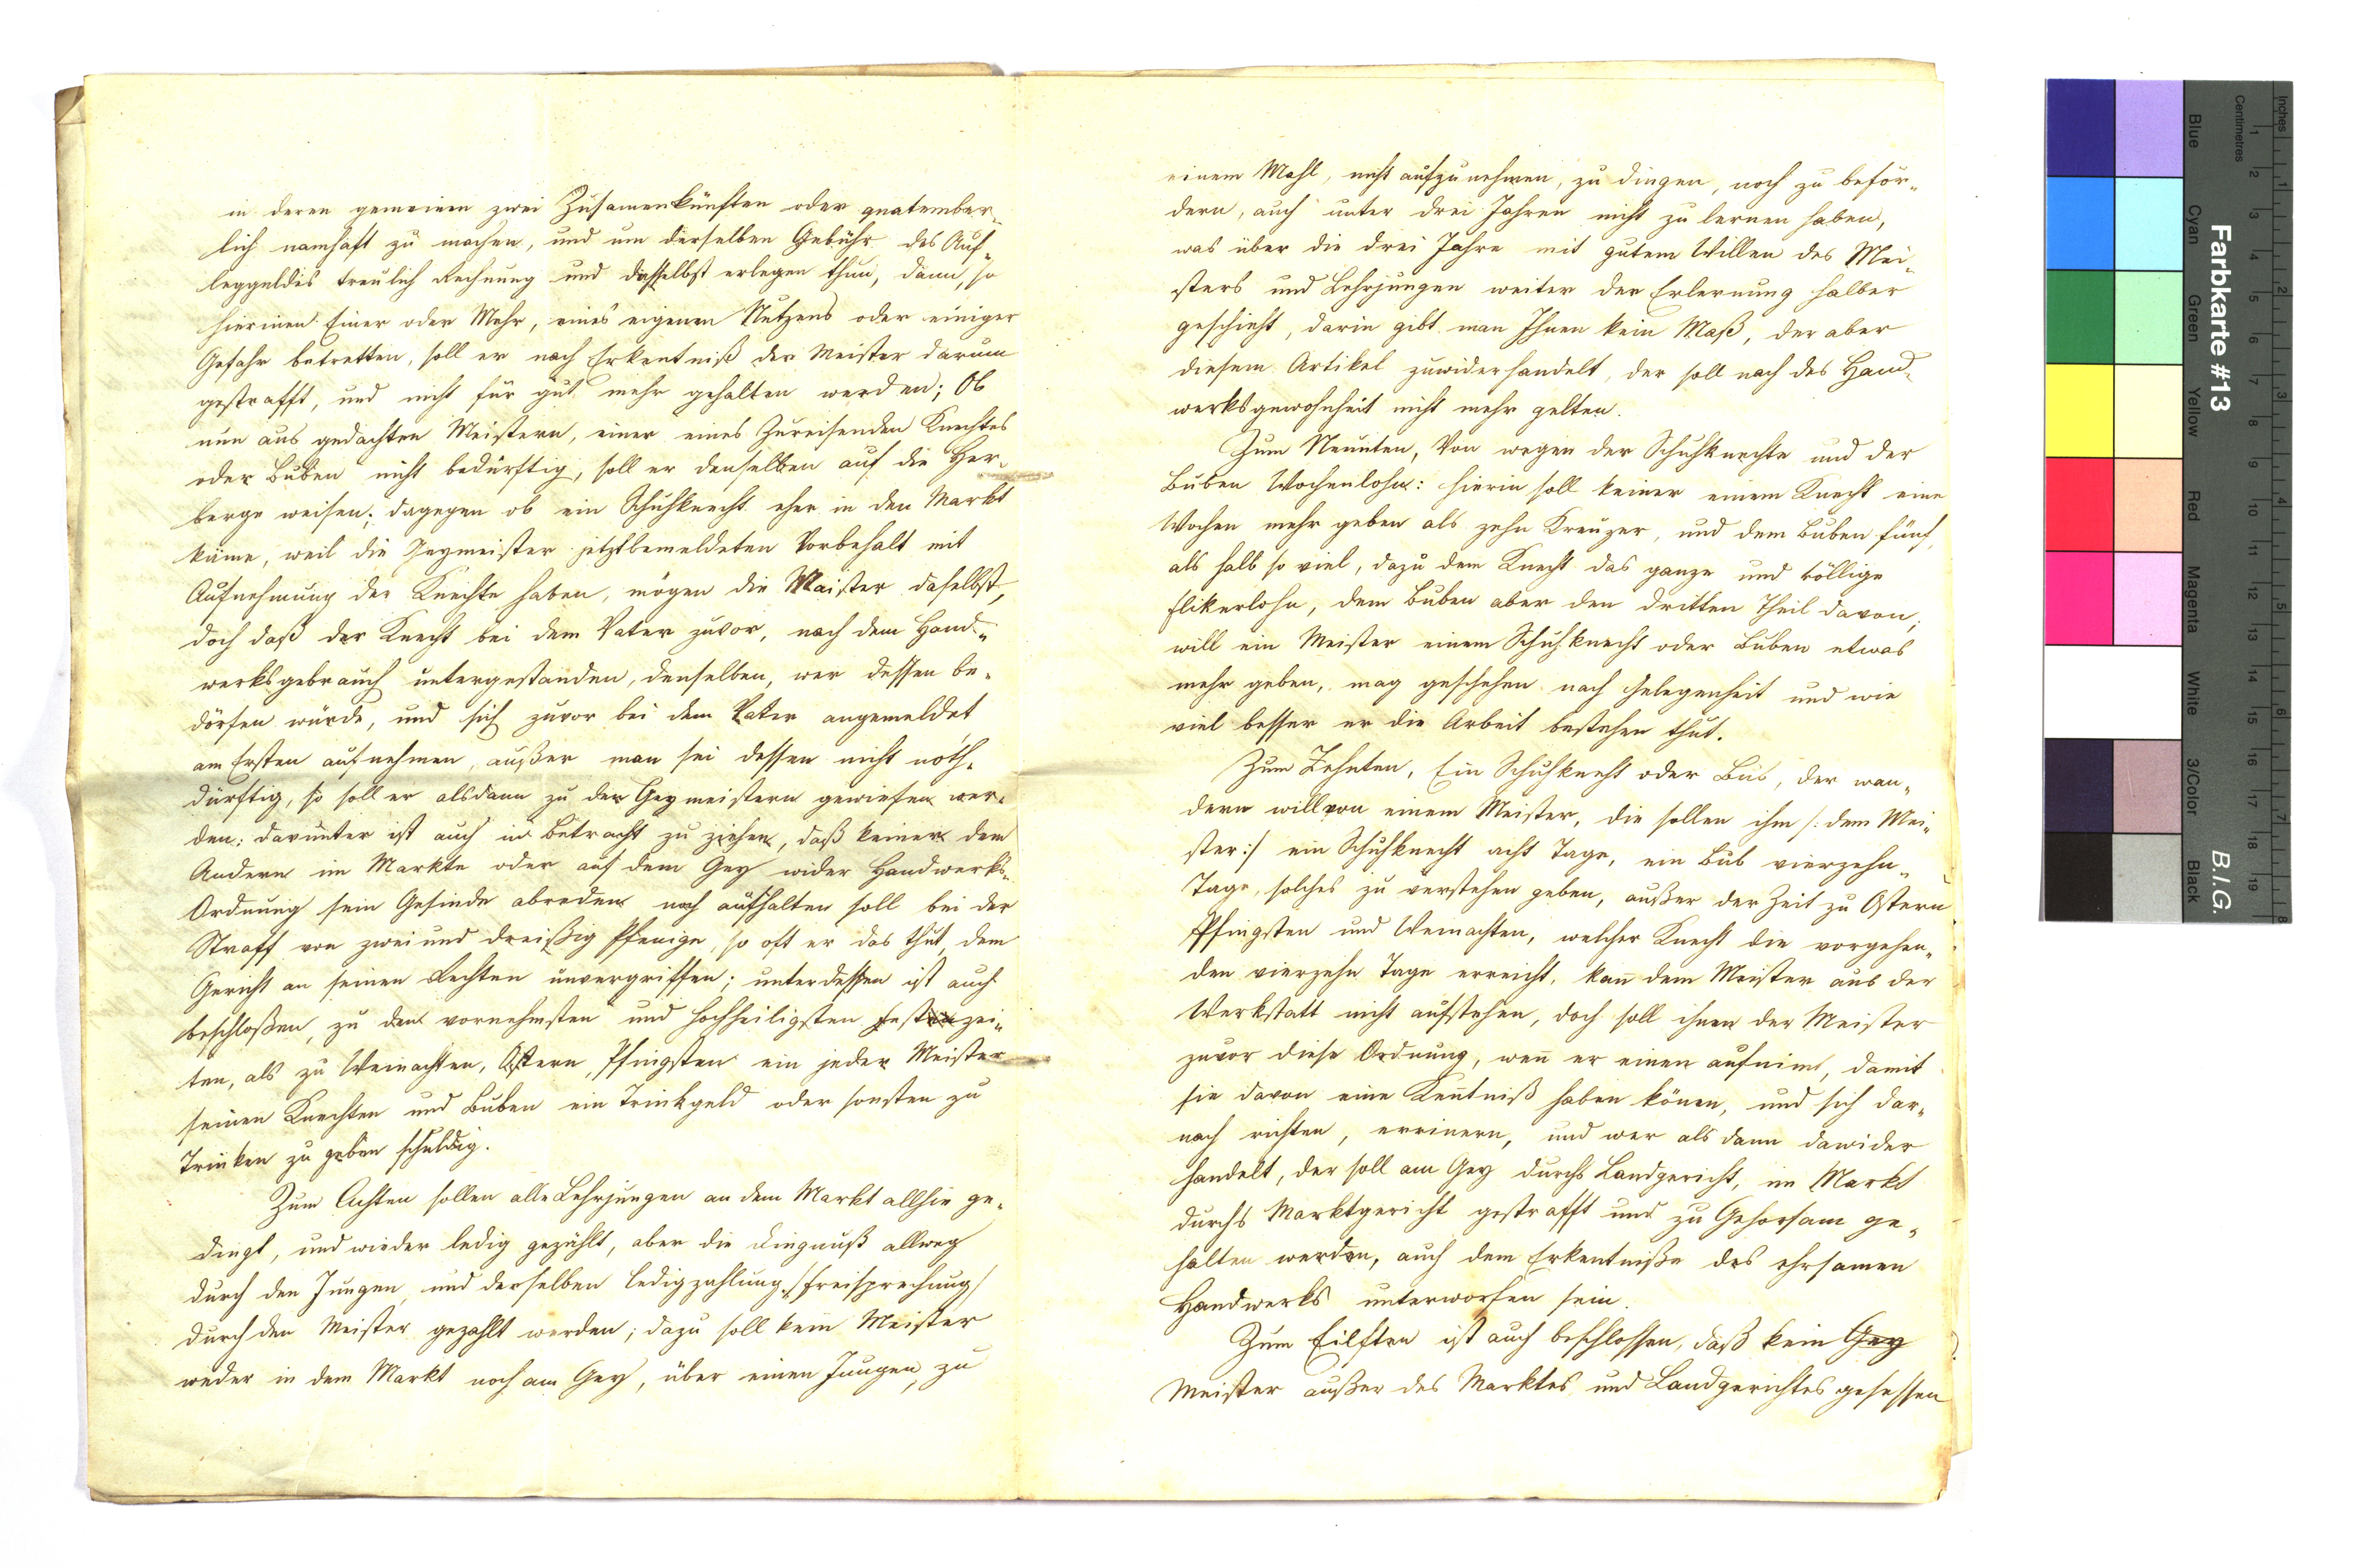 in deren gemeinen zwei Zusamenkünften oder quatember¬
lich namhaft zu machen, und um derselben Gebühr des Auf¬
leggeldes treulich Rechnung und dasselbst erlegen thun, dann, so
hierinen Einer oder Mehr, eines eigenen Nutzens oder einiger
Gefahr betretten, soll er nach Erkentniß der Meister darum
gestrafft, und nicht für gut mehr gehalten werden; Ob
nun aus gedachten Meistern, einer eines Zureisenden Knechtes
oder Buben nicht bedürftig, soll er denselben auf die Her¬
berge weisen; dagegen ob ein Schuhknecht eher in den Markt
käme, weil die Geymeister jetztbemeldeten Vorbehalt mit
Aufnehmung der Knechte haben, mögen die Maister daselbst,
doch daß der Knecht bei dem Vater zuvor, nach dem Hand¬
werksgebrauch untergestanden, denselben, wer dessen be¬
dörfen würde, und sich zuvor bei dem Vater angemeldet
am Ersten aufnehmen, außer man sei dessen nicht noth¬
dürftig, so soll er alsdann zu den Geymeistern gewiesen wer¬
den: darunter ist auch in Betracht zu ziehen, daß keiner dem
Andern im Markte oder auf dem Gey wider Handwerks¬
Ordnung sein Gesinde abreden noch aufhalten soll bei der
Straff von zwei und dreißig Pfenige, so oft er das thut, dem
Gericht an seinen Rechten unvergriffen; unterdessen ist auch
beschloßen, zu den vornehmsten und hochheiligsten Festzei¬
ten, als zu Weinachten, Ostern, Pfingsten ein jeder Meister
seinen Knechten und Buben ein Trinkgeld oder sonsten zu
Trinken zu geben schuldig.
Zum Achten sollen alle Lehrjungen an dem Markt allhie ge¬
dingt, und wieder ledig gezählt, aber die Dingnuß allweg
durch den Jungen, und derselben Ledigzahlung /:freisprechung/
durch den Meister gezahlt werden; dazu soll kein Meister
weder in dem Markt noch am Gey, über einen Jungen, zu
einem Mahl, nicht aufzunehmen, zu dingen, noch zu beför¬
dern, auch unter drei Jahren nicht zu lernen haben,
was über die drei Jahre mit gutem Willen des Mei¬
sters und Lehrjungen weiter der Erlernung halber
geschieht, darin gibt man Ihnen kein Maß, der aber
diesem Artikel zuwiderhandelt, der soll nach des Hand¬
werksgewohnheit nicht mehr gelten.
Zum Neunten, Von wegen der Schuhknechte und der
Buben Wochenlohn: hierin soll keiner einem Knecht eine
Wochen mehr geben als zehn Kreuzer, und dem Buben fünf,
als halb so viel, dazu dem Knecht das ganze und völlige
Flikerlohn, dem Buben aber den dritten Theil davon;
will ein Meister einem Schuhknecht oder Buben etwas
mehr geben, mag geschehen nach Gelegenheit und wie
viel besser er die Arbeit bestehen thut.
Zum Zehnten, Ein Schuhknecht oder Bub, der wan¬
dern will von einem Meister, die sollen ihm /: dem Mei¬
ster:/ ein Schuhknecht acht Tage, ein Bub vierzehn
Tage, solches zu verstehen geben, außer der Zeit zu Ostern
Pfingsten und Weinachten, welcher Knecht die vorgehen¬
den vierzehn Tage erreicht, kan̄ dem Meister aus der
Werkstatt nicht aufstehen, doch soll ihnen der Meister
zuvor diese Ordnung, wen̄ er einen aufnimt, damit
sie davon eine Ken̄tniß haben könen, und sich dar¬
nach richten, errinern, und wer als dann dawider
handelt, der soll am Gey durchs Landgericht, im Markt
durchs Marktgericht gestrafft und zu Gehorsam ge¬
halten werden, auch dem Erkentniße des ehrsamen
Handwerks unterworfen sein.
Zum Eilften ist auch beschlossen, daß kein Gey
Meister außer des Marktes und Landgerichtes gesessen
Farbkarte #13
B.I.G.
Inches
Centimetres
Blue
Cyan
Green
Yellow
Red
Magenta
White
3/Color
Black
1 2 3 4 5 6 7 8 9 10 11 12 13 14 15 16 17 18 19
1 2 3 4 5 6 7 8